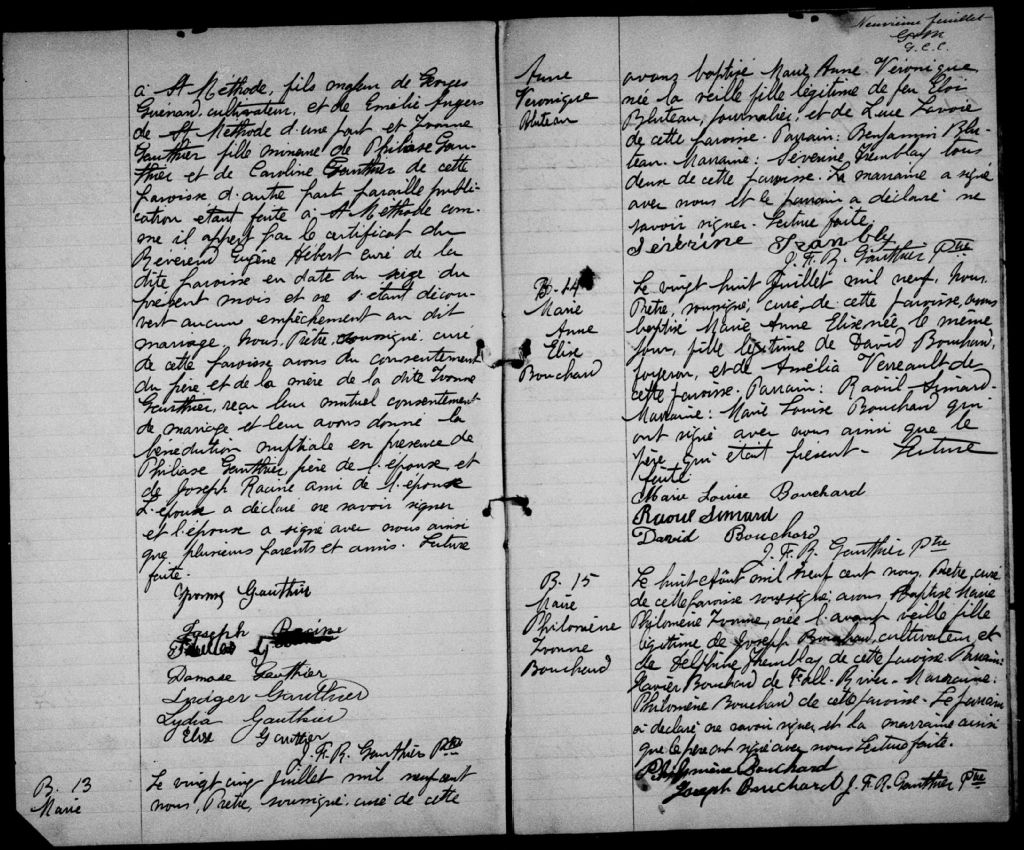 à St Méthode, fils majeur de Georges
Guénard, cultivateur, et de Emélie Angers
de St Méthode d'une part et Yvonne
Gauthier fille mineure de Philiase Gau-
thier et de Caroline Gauthier de cette
paroisse d'autre part pareille publi-
cation étant faite à St Méthode com-
me il appert par le certificat du
Révérend Eugène Hébert curé de la
dite paroisse en date du seize du
présent mois et ne s'étant décou-
vert aucun empêchement au dit
mariage, Nous, Prêtre, soussigné, curé
de cette paroisse avons du consentement
du père et de la mère de la dite Yvonne
Gauthier, reçu leur mutuel consentement
de mariage et leur avons donné la
bénédiction nuptiale en présence de
Philiase Gauthier, père de l'épouse et
de Joseph Racine ami de l'époux
L'époux a déclaré ne savoir signer
et l'épouse a signé avec nous ainsi
que plusieurs parents et amis. Lecture
faite.
Yvonne Gauthier
Joseph Racine
Damase Gauthier
Ludger Gauthier
Lydia Gauthier
Elise Gauthier
J. F. R. Gauthier Ptre
B. 13
Marie
Le vingt cinq juillet mil neuf cent
nous, Prêtre, soussigné curé de cette
Neuvième feuillet
G.C.C.
Anne
Véronique
Bluteau
avons baptisé Marie Anne Véronique
née la veille fille légitime de feu Eloi
Bluteau, journalier, et de Luce Lavoie
de cette paroisse. Parrain: Benjamin Blu-
teau. Marraine: Séverine Tremblay tous
deux de cette paroisse. La marraine a signé
avec nous et le parrain a déclaré ne
savoir signer. Lecture faite.
Séverine Tranbly
J. F. R. Gauthier Ptre
B. 14
Marie
Anne
Elise
Bouchard
Le vingt huit Juillet mil neuf, Nous,
Prêtre, soussigné, curé de cette paroisse, avons
baptisé Marie Anne Elise, née le même
jour, fille légitime de David Bouchard,
forgeron, et de Amélia Verreault de
cette paroisse. Parrain: Raoul Simard.
Marraine: Marie Louise Bouchard qui
ont signé avec nous ainsi que le
père qui était présent - Lecture
faite
Marie Louise Bouchard
Raoul Simard
David Bouchard
J. F. R. Gauthier Ptre
B. 15
Marie
Philomène
Yvonne
Bouchard
Le huit Août mil neuf cent nous, Prêtre, curé
de cette paroisse soussigné, avons Baptisé Marie
Philomène Yvonne, née l'avant veille fille
légitime de Joseph Bouchard, cultivateur, et
de Delphine Tremblay de cette paroisse Parrain:
Xavier Bouchard de Fall-River - Marraine:
Philomène Bouchard de cette paroisse - Le parrain
a déclaré ne savoir signer, et la marraine ainsi
que le père ont signé avec nous Lecture faite.
Philomène Bouchard
Joseph Bouchard J. F. R. Gauthier Ptre